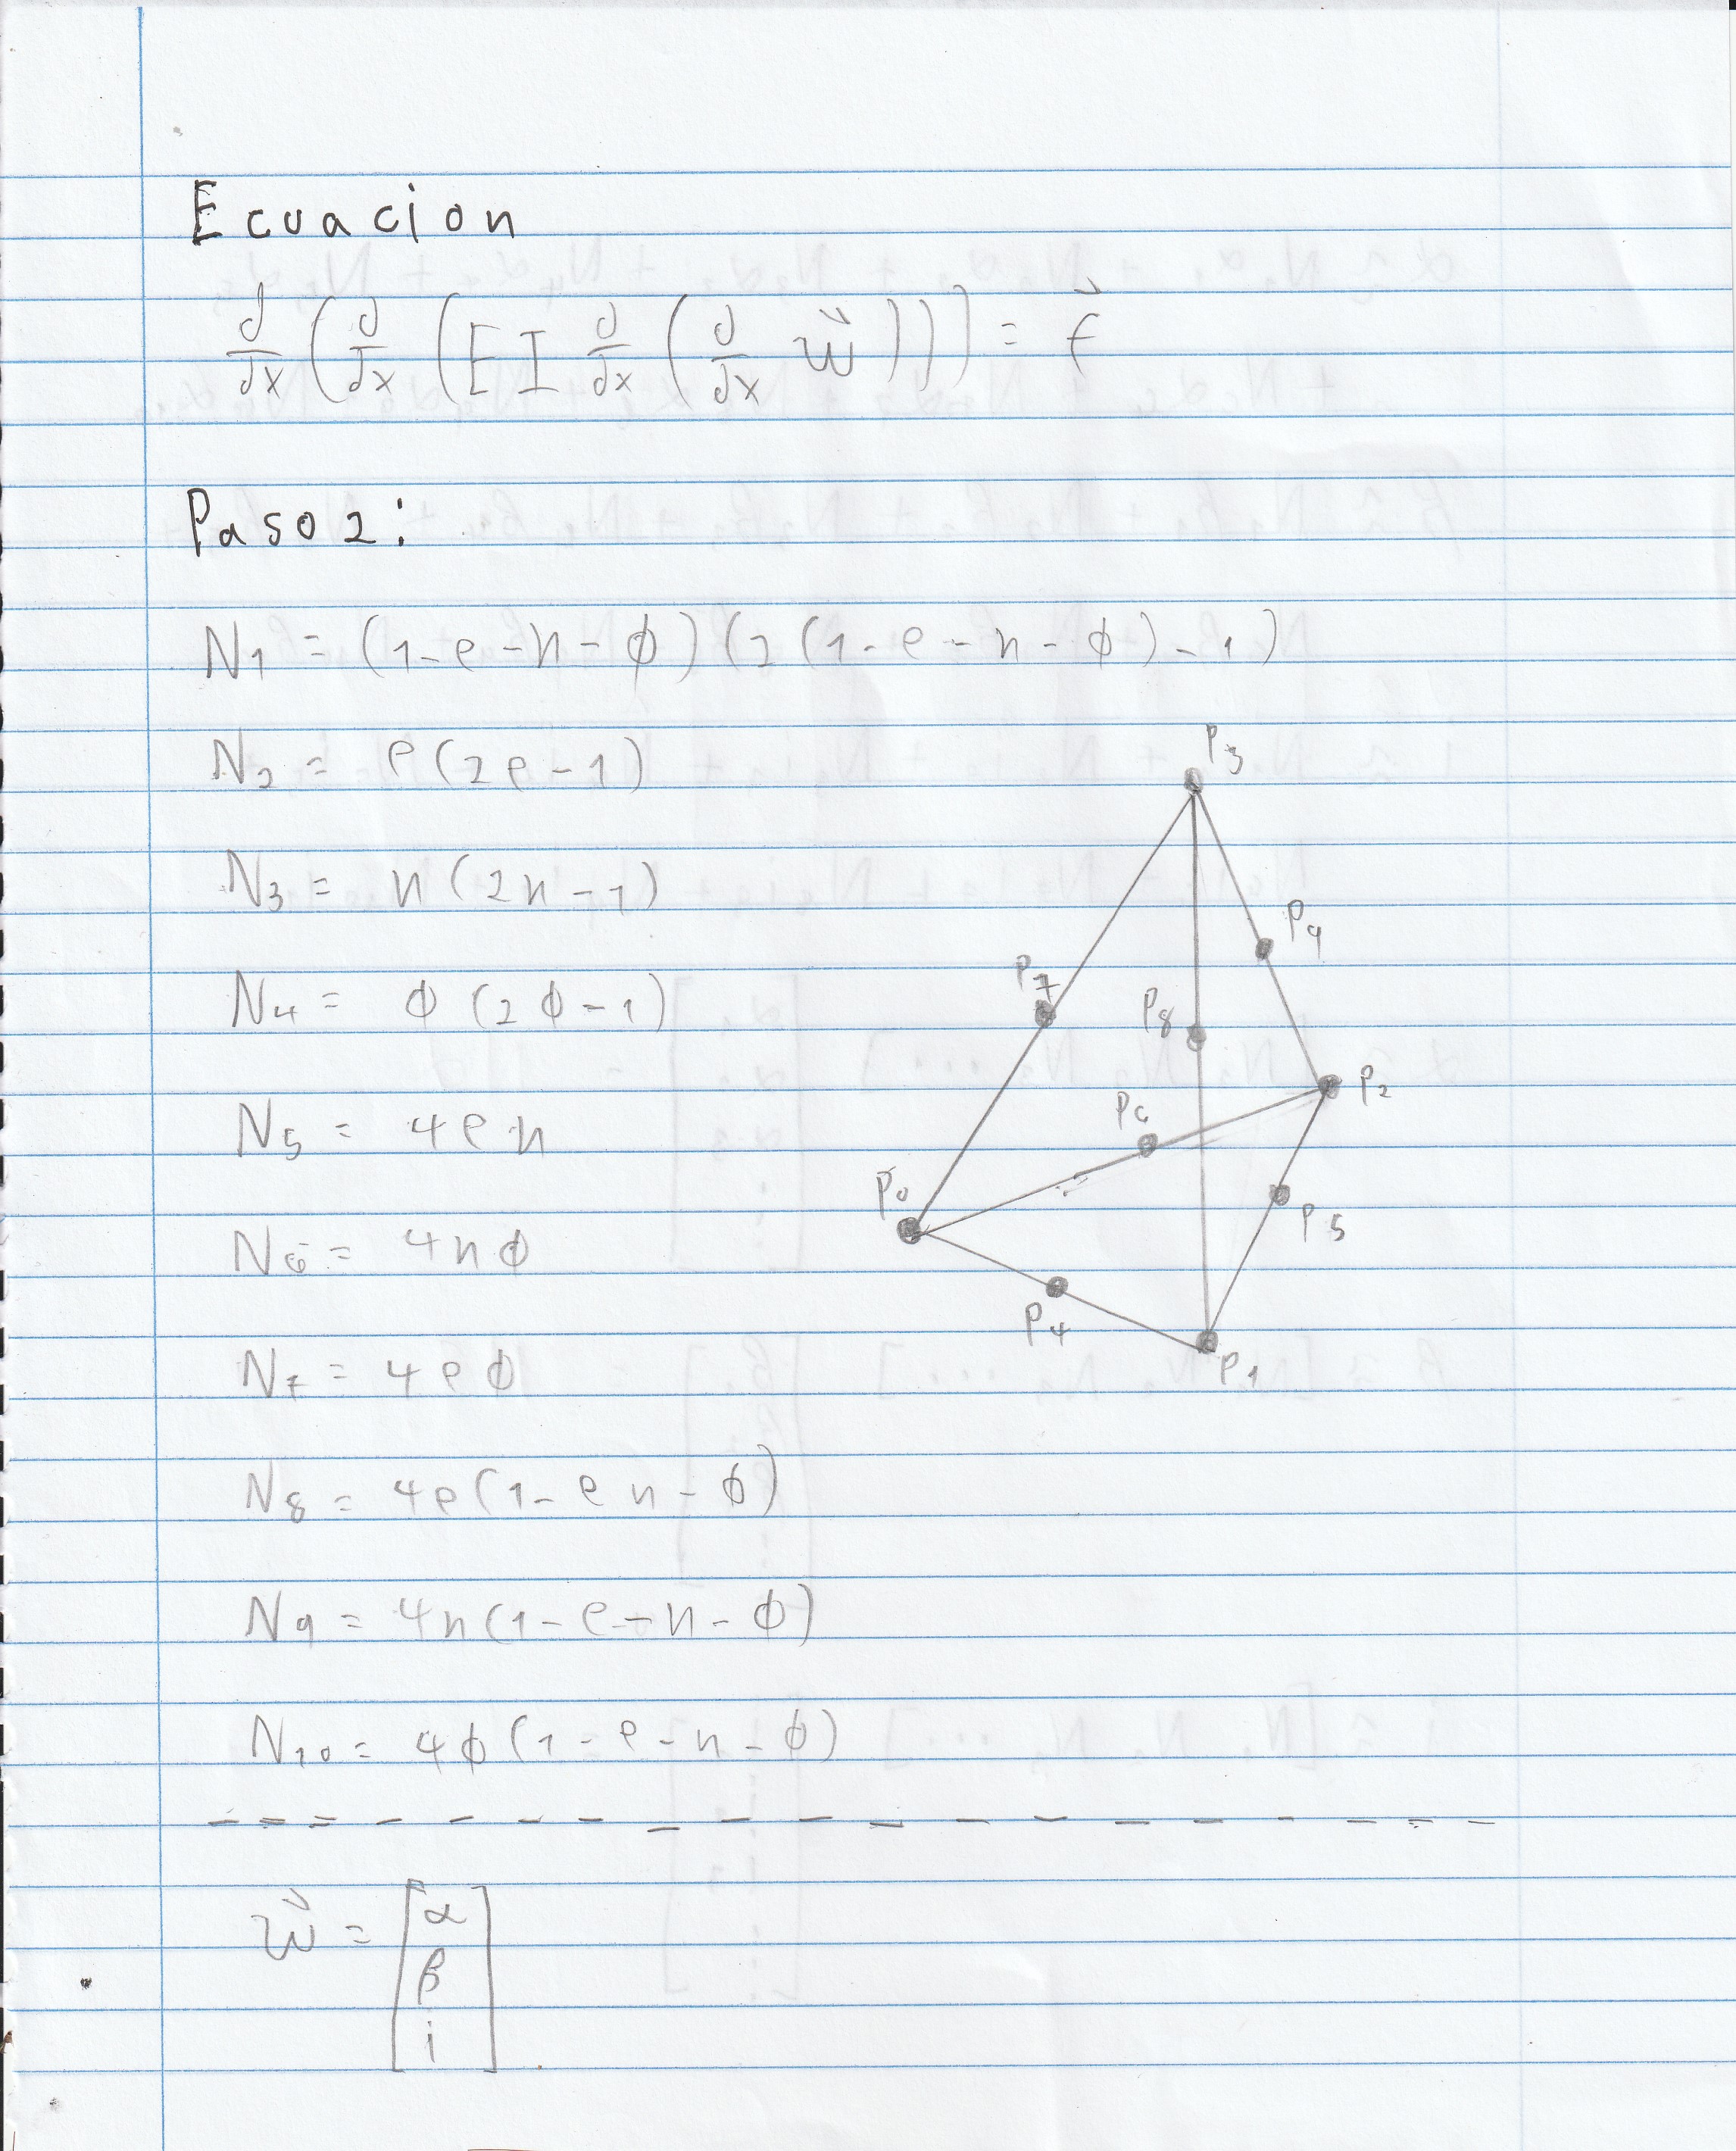 Ecuacion
∂/∂x (∂/∂x (EI ∂/∂x (∂/∂x w⃗))) = f⃗
Paso 2:
N1 = (1-e-n-φ)(2(1-e-n-φ)-1)
N2 = e(2e-1)
N3 = n(2n-1)
N4 = φ(2φ-1)
N5 = 4en
N6 = 4nφ
N7 = 4eφ
N8 = 4e(1-e n-φ)
N9 = 4n(1-e-n-φ)
N10 = 4φ(1-e-n-φ)
P3
P9
P7
P8
P2
P6
P0
P5
P4
P1
w⃗ = [α
β
i]